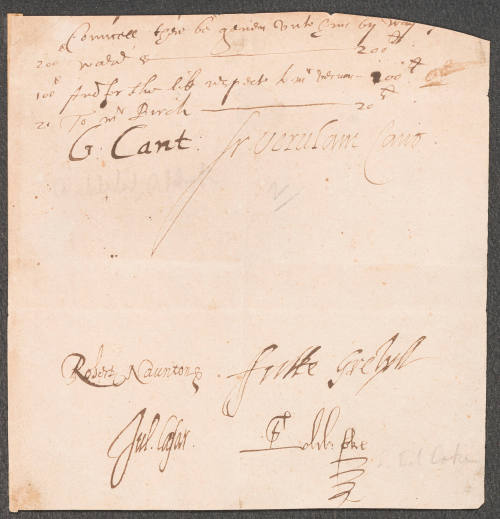 Councell there be geuen vnto him by way
200 ward &
200
100 And for the like respecte to mr 100
20 To mr Birch 20
G: Cant: fr. Verulam Canc
Robert Naunton
fulke Grevyll
Jul. Cæsar.
Edw: Coke
Ed Coke